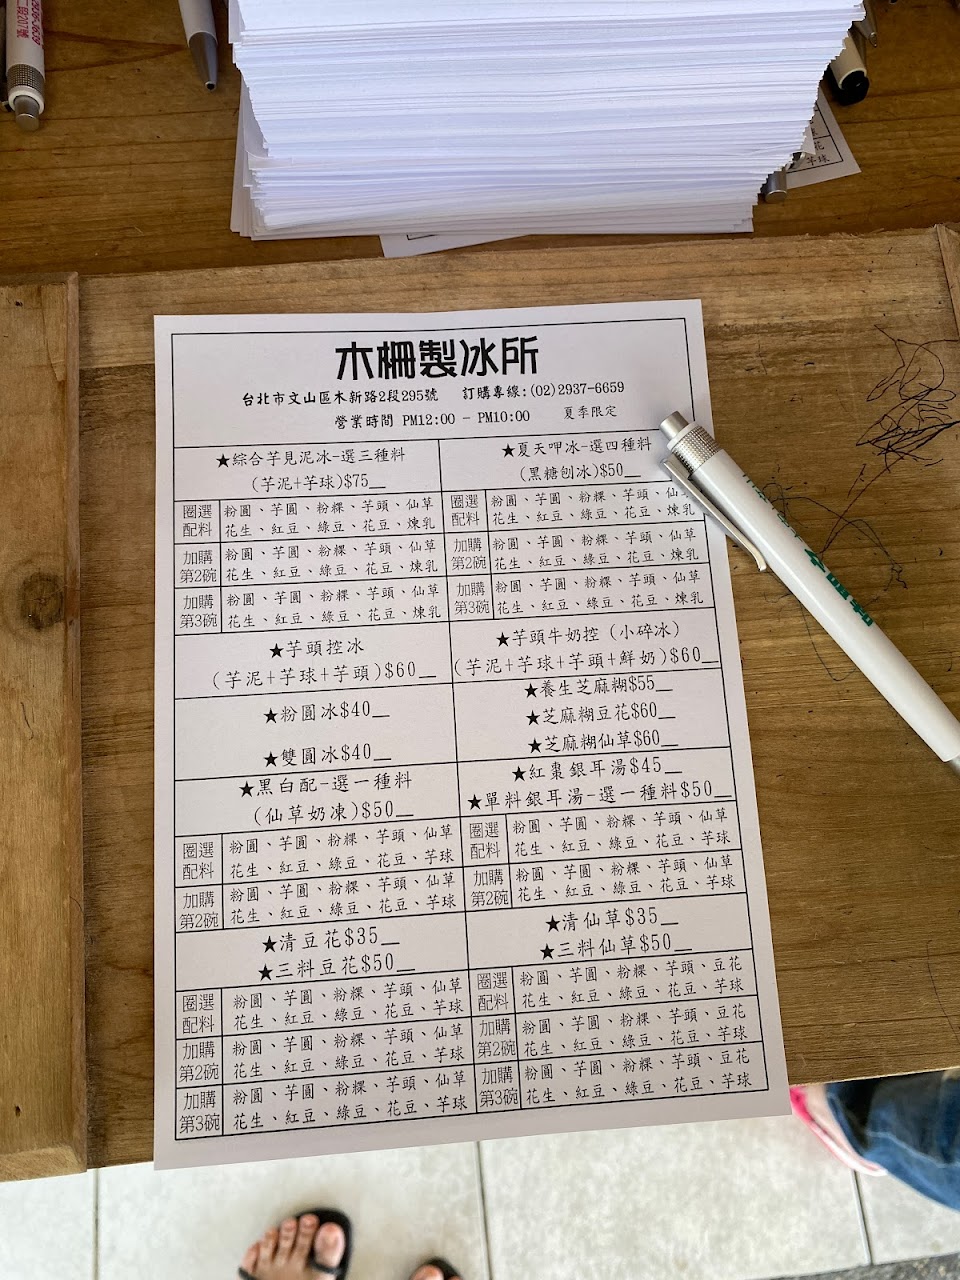 木柵製冰所
台北市文山區木新路2段295號 訂購專線:(02)2937-6659
營業時間 PM12:00 - PM10:00 夏季限定
★綜合芋見泥冰-選三種料
(芋泥+芋球)$75__
圈選配料
粉圓、芋圓、粉粿、芋頭、仙草
花生、紅豆、綠豆、花豆、煉乳
加購第2碗
粉圓、芋圓、粉粿、芋頭、仙草
花生、紅豆、綠豆、花豆、煉乳
加購第3碗
粉圓、芋圓、粉粿、芋頭、仙草
花生、紅豆、綠豆、花豆、煉乳
★夏天呷冰-選四種料
(黑糖刨冰)$50__
圈選配料
粉圓、芋圓、粉粿、芋頭、仙草
花生、紅豆、綠豆、花豆、煉乳
加購第2碗
粉圓、芋圓、粉粿、芋頭、仙草
花生、紅豆、綠豆、花豆、煉乳
加購第3碗
粉圓、芋圓、粉粿、芋頭、仙草
花生、紅豆、綠豆、花豆、煉乳
★芋頭控冰
(芋泥+芋球+芋頭)$60__
★芋頭牛奶控(小碎冰)
(芋泥+芋球+芋頭+鮮奶)$60__
★粉圓冰$40__
★雙圓冰$40__
★養生芝麻糊$55__
★芝麻糊豆花$60__
★芝麻糊仙草$60__
★黑白配-選一種料
(仙草奶凍)$50__
圈選配料
粉圓、芋圓、粉粿、芋頭、仙草
花生、紅豆、綠豆、花豆、芋球
加購第2碗
粉圓、芋圓、粉粿、芋頭、仙草
花生、紅豆、綠豆、花豆、芋球
★紅棗銀耳湯$45__
★單料銀耳湯-選一種料$50__
圈選配料
粉圓、芋圓、粉粿、芋頭、仙草
花生、紅豆、綠豆、花豆、芋球
加購第2碗
粉圓、芋圓、粉粿、芋頭、仙草
花生、紅豆、綠豆、花豆、芋球
★清豆花$35__
★三料豆花$50__
圈選配料
粉圓、芋圓、粉粿、芋頭、仙草
花生、紅豆、綠豆、花豆、芋球
加購第2碗
粉圓、芋圓、粉粿、芋頭、仙草
花生、紅豆、綠豆、花豆、芋球
加購第3碗
粉圓、芋圓、粉粿、芋頭、仙草
花生、紅豆、綠豆、花豆、芋球
★清仙草$35__
★三料仙草$50__
圈選配料
粉圓、芋圓、粉粿、芋頭、豆花
花生、紅豆、綠豆、花豆、芋球
加購第2碗
粉圓、芋圓、粉粿、芋頭、豆花
花生、紅豆、綠豆、花豆、芋球
加購第3碗
粉圓、芋圓、粉粿、芋頭、豆花
花生、紅豆、綠豆、花豆、芋球